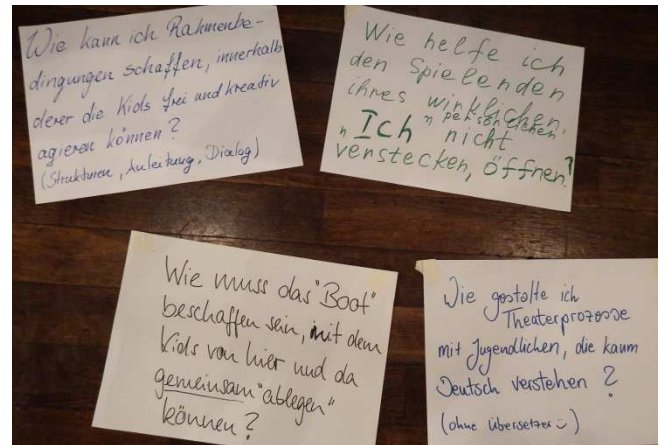 Wie kann ich Rahmenbe-
dingungen schaffen, innerhalb
derer die Kids frei und kreativ
agieren können?
(Strukturen, Anleitung, Dialog)
Wie helfe ich
den Spielenden
ihres wirklichen,
"persönlichen
"Ich" nicht
verstecken, öffnen?
Wie muss das "Boot"
beschaffen sein, mit dem
Kids von hier und da
gemeinsam "ablegen"
können?
Wie gestalte ich
Theaterprozesse
mit Jugendlichen, die kaum
Deutsch verstehen?
(ohne Übersetzer ☺)